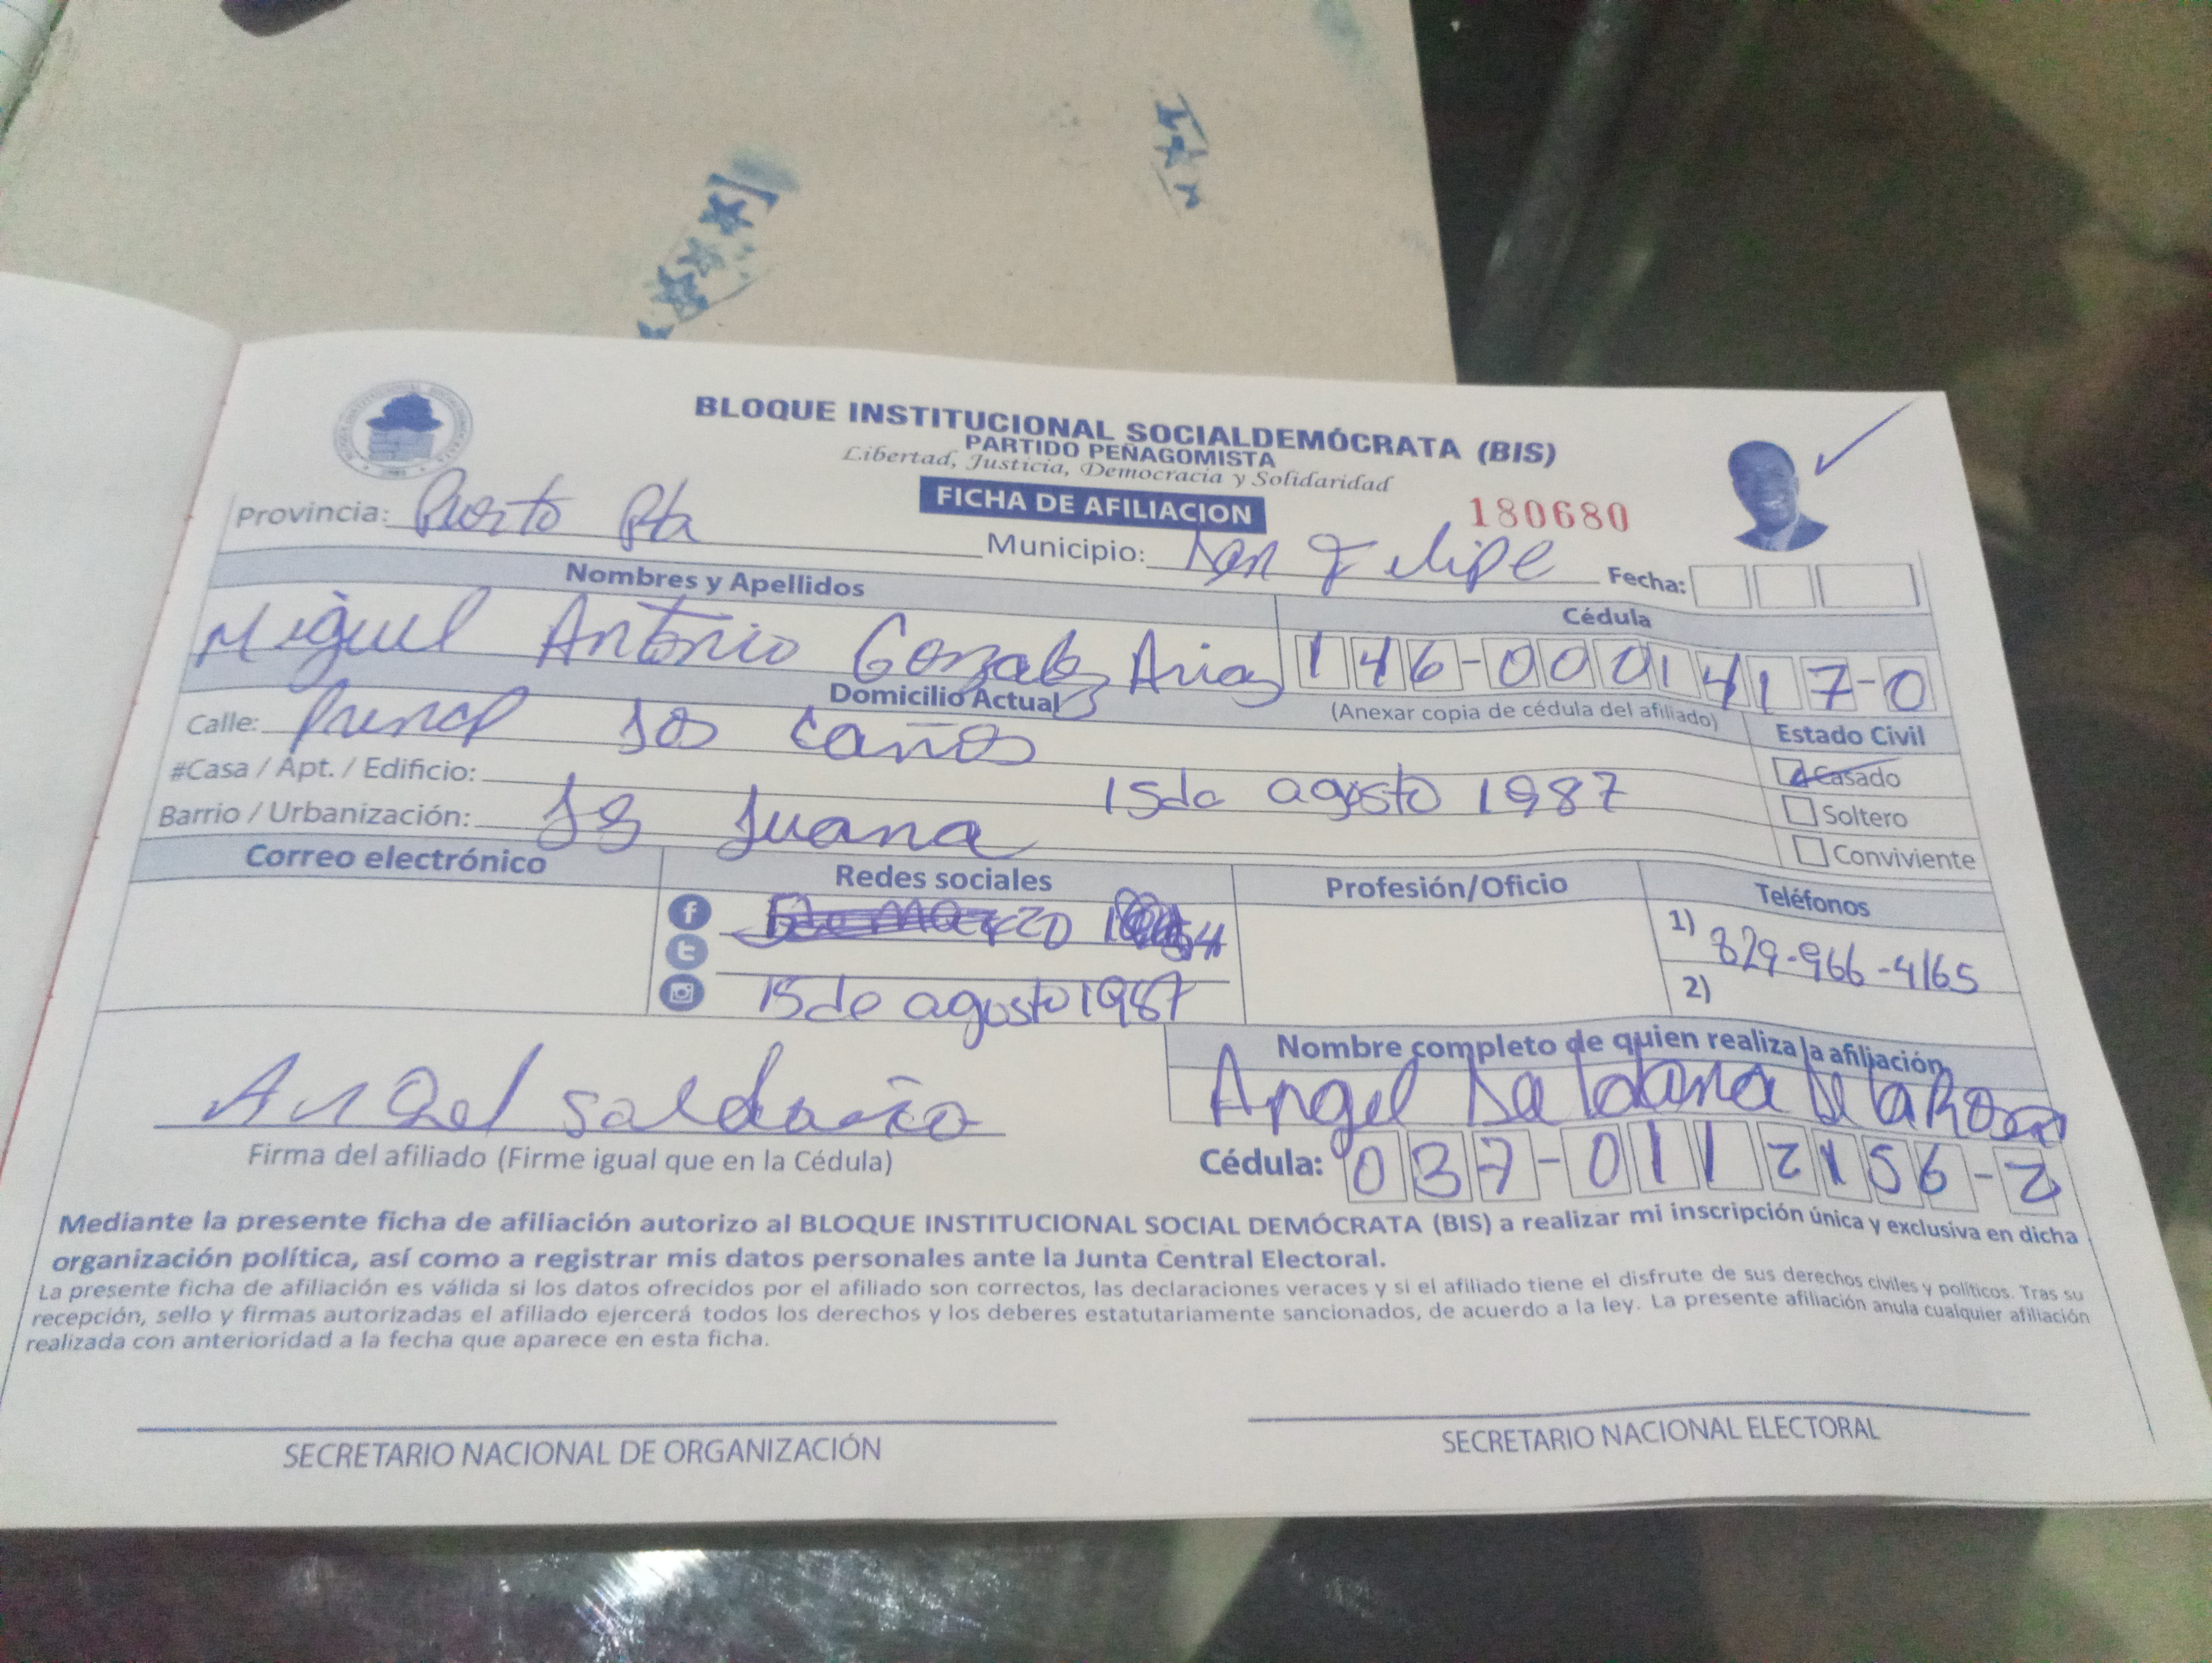 BLOQUE INSTITUCIONAL SOCIALDEMÓCRATA (BIS)
PARTIDO PEÑAGOMISTA
Libertad, Justicia, Democracia y Solidaridad
FICHA DE AFILIACION
180680
Provincia: Puerto Pta Municipio: San Felipe Fecha:
Nombres y Apellidos Cédula
Miguel Antonio Gonzalez Arias 146-0001417-0
Domicilio Actual (Anexar copia de cédula del afiliado) Estado Civil
Calle: los Caños
Casado
#Casa / Apt. / Edificio: 15 de agosto 1987
Soltero
Barrio / Urbanización: Juana
Conviviente
Correo electrónico Redes sociales Profesión/Oficio Teléfonos
1) 829-966-4165
2)
15 de agosto 1987
Nombre completo de quien realiza la afiliación
Angel Saldaña Angel Saldana De la Rosa
Firma del afiliado (Firme igual que en la Cédula) Cédula: 037-0112156-2
Mediante la presente ficha de afiliación autorizo al BLOQUE INSTITUCIONAL SOCIAL DEMÓCRATA (BIS) a realizar mi inscripción única y exclusiva en dicha
organización política, así como a registrar mis datos personales ante la Junta Central Electoral.
La presente ficha de afiliación es válida si los datos ofrecidos por el afiliado son correctos, las declaraciones veraces y si el afiliado tiene el disfrute de sus derechos civiles y políticos. Tras su
recepción, sello y firmas autorizadas el afiliado ejercerá todos los derechos y los deberes estatutariamente sancionados, de acuerdo a la ley. La presente afiliación anula cualquier afiliación
realizada con anterioridad a la fecha que aparece en esta ficha.
SECRETARIO NACIONAL DE ORGANIZACIÓN SECRETARIO NACIONAL ELECTORAL